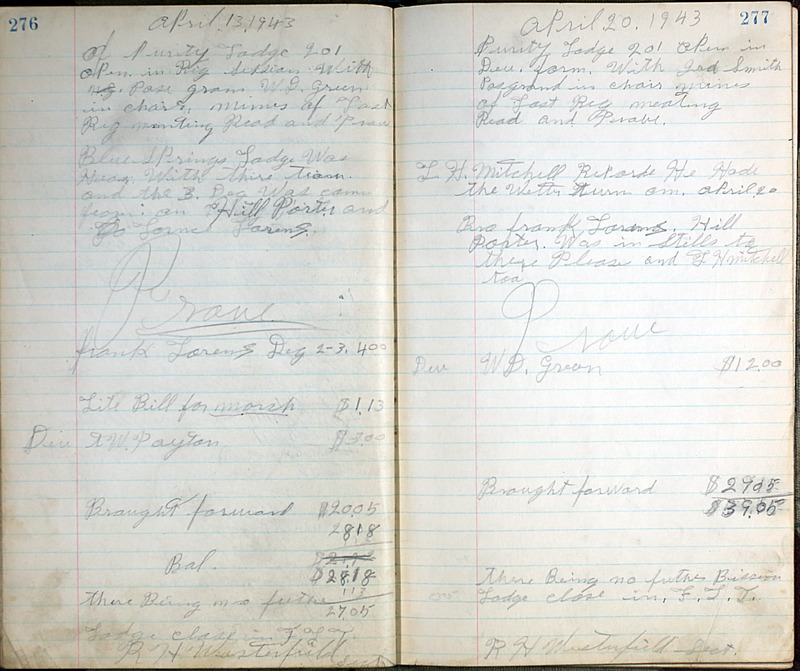 276
April. 13, 1943
of Purity Lodge 201
open in Reg session With
Pose gran W.D. Green
in chair, mines of Last
Reg meeting Read and Prove
Blue Springs Lodge Was
Hear With there team.
and the 3. Deg Was
on Hill Porter and
Lorens.
Prove
frank Lorens Deg 2-3. 400
Lite Bill for march $1.13
Due A.W. Payton $3.00
Brought forward $20.05
2818
Bal.
$28.18
1.13
there Being no futhe
27.05
Lodge close in F.L.T.
R H Westerfield
Sect
277
April 20, 1943
Purity Lodge 201 open in
Due. form. With Jod Smith
Posgrand in chair mines
of Last Reg meating
Read and Prove.
L. H. Mitchell Reporde He Hade
the Wetter turn on. April 20
Bro frank Lorens. Hill
Porter. Was in Stills to
there Please and L H mitchell
too
Prove
Due W.D. Green $12.00
Brought forward $29.05
$39.05
there Being no futher Bission
Lodge close in, F.L.T.
R H Westerfield Sect.